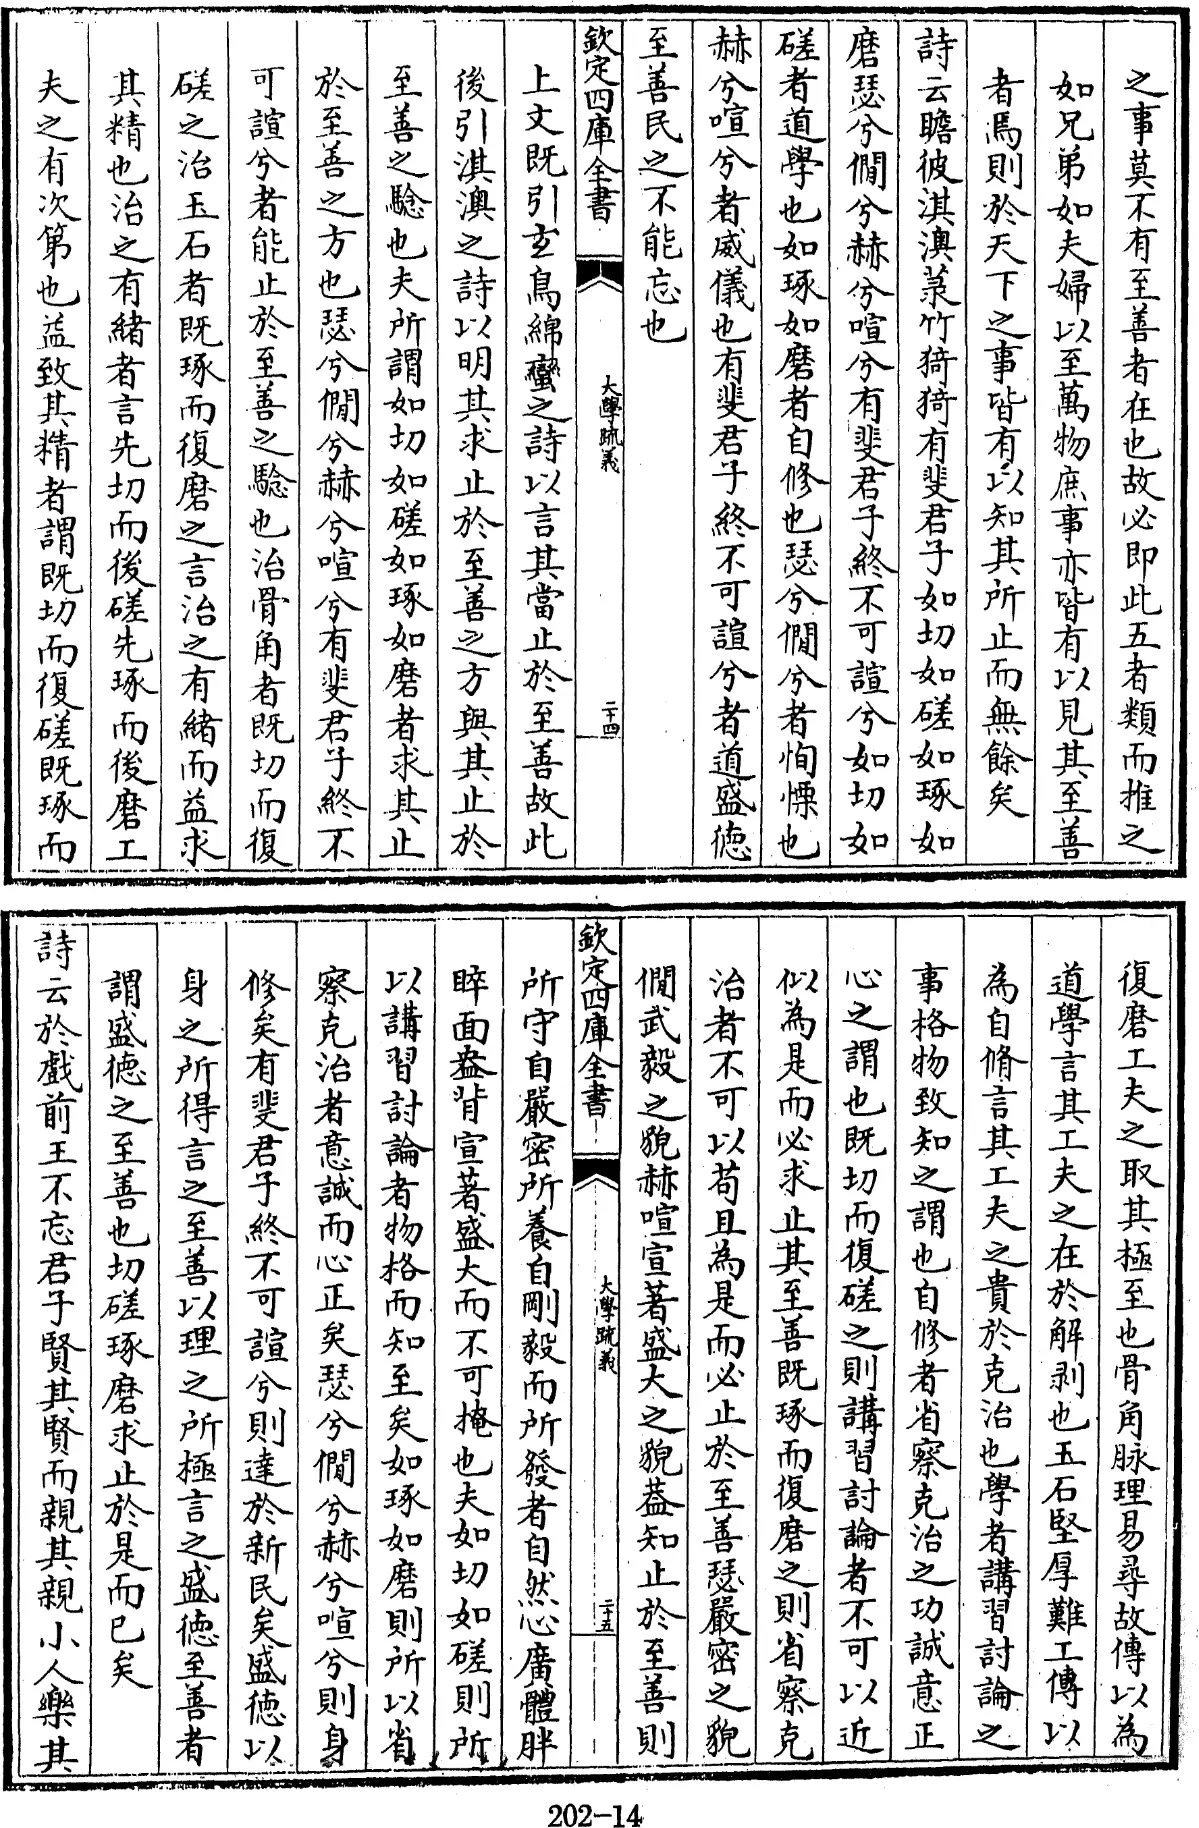 之事莫不有至善者在也故必即此五者類而推之
如兄弟如夫婦以至萬物庶事亦皆有以見其至善
者焉則於天下之事皆有以知其所止而無餘矣
詩云瞻彼淇澳菉竹猗猗有斐君子如切如磋如琢如
磨瑟兮僩兮赫兮喧兮有斐君子終不可諠兮如切如
磋者道學也如琢如磨者自修也瑟兮僩兮者恂慄也
赫兮喧兮者威儀也有斐君子終不可諠兮者道盛德
至善民之不能忘也
欽定四庫全書
大學疏義
二十四
上文既引玄鳥綿蠻之詩以言其當止於至善故此
後引淇澳之詩以明其求止於至善之方與其止於
至善之驗也夫所謂如切如磋如琢如磨者求其止
於至善之方也瑟兮僩兮赫兮喧兮有斐君子終不
可諠兮者能止於至善之驗也治骨角者既切而復
磋之治玉石者既琢而復磨之言治之有緒而益求
其精也治之有緒者言先切而後磋先琢而後磨工
夫之有次第也益致其精者謂既切而復磋既琢而
復磨工夫之取其極至也骨角脉理易尋故傳以為
道學言其工夫之在於解剥也玉石堅厚難工傳以
為自脩言其工夫之貴於克治也學者講習討論之
事格物致知之謂也自修者省察克治之功誠意正
心之謂也既切而復磋之則講習討論者不可以近
似為是而必求止其至善既琢而復磨之則省察克
治者不可以苟且為是而必止於至善瑟嚴密之貌
僩武毅之貌赫喧宣著盛大之貌葢知止於至善則
欽定四庫全書
大學疏義
二十五
所守自嚴密所養自剛毅而所發者自然心廣體胖
睟面盎背宣著盛大而不可掩也夫如切如磋則所
以講習討論者物格而知至矣如琢如磨則所以省
察克治者意誠而心正矣瑟兮僩兮赫兮喧兮則身
修矣有斐君子終不可諠兮則達於新民矣盛德以
身之所得言之至善以理之所極言之盛德至善者
謂盛德之至善也切磋琢磨求止於是而已矣
詩云於戲前王不忘君子賢其賢而親其親小人樂其
202-14